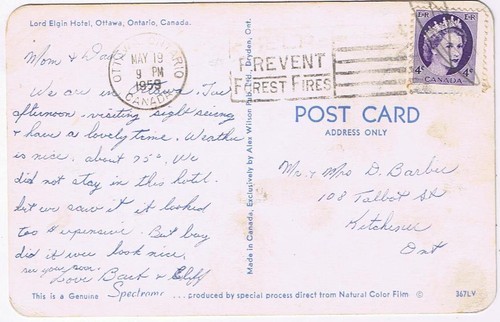 Lord Elgin Hotel, Ottawa, Ontario, Canada.
Mom & Dad
We are in Tue
afternoon visiting sight seeing
& have a lovely time. Weather
is nice. about 75°. We
did not stay in this hotel.
but we saw it it looked
too expensive. But boy
did it ever look nice.
see you soon.
Love Barb & Cliff
This is a Genuine Spectrome ...produced by special process direct from Natural Color Film ©
367LV
Made in Canada, Exclusively by Alex Wilson Pub. Ltd., Dryden, Ont.
OTTAWA ONTARIO
MAY 19
9 PM
1959
CANADA
PREVENT
FOREST FIRES
E R
4¢ CANADA 4¢
POST CARD
ADDRESS ONLY
Mr. & Mrs D. Barbee
108 Talbot St
Kitchener
Ont